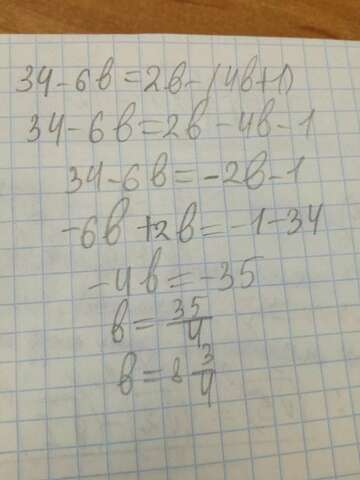 34-6в=2в-(4в+1)
34-6в=2в-4в-1
34-6в=-2в-1
-6в+2в=-1-34
-4в=-35
в=35/4
в=8 3/4